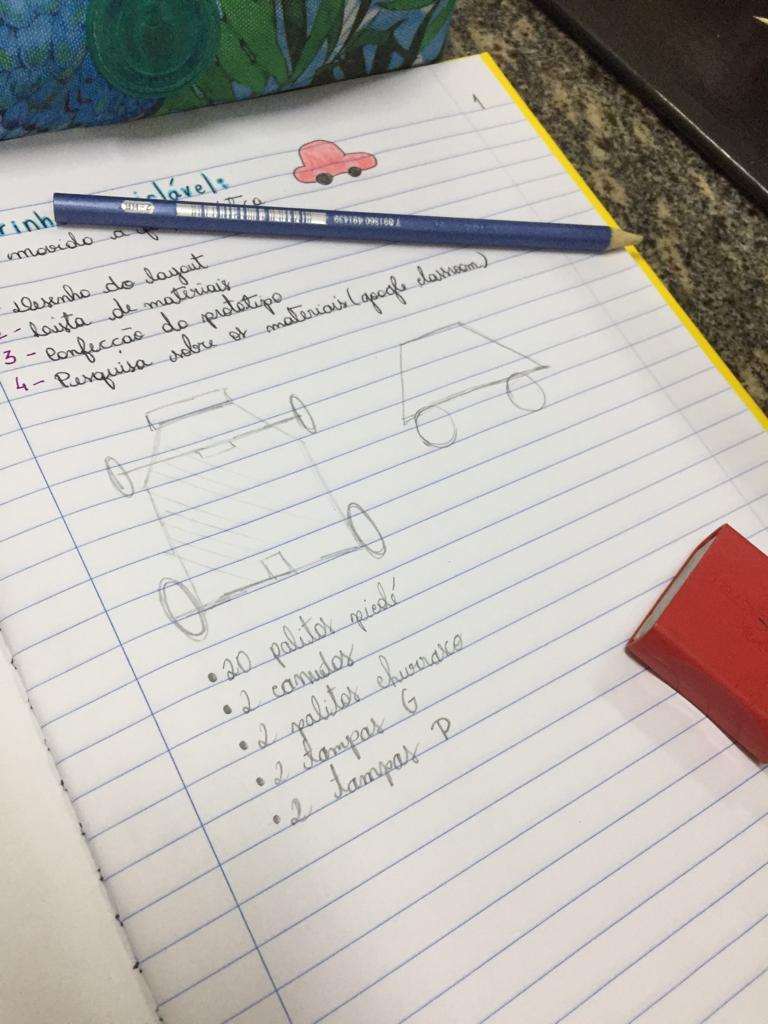 1
movido a
Desenho do layout
2- Lista de materiais
3- Confecção do protótipo
4- Pesquisa sobre os materiais (google classroom)
• 20 palitos picolé
• 2 canudos
• 2 palitos churrasco
• 2 tampas G
• 2 tampas P
2=HB
7 891360 491439